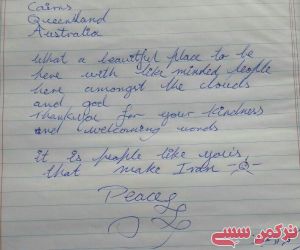 Cairns
Queensland
Australia
What a beautiful place to be
here with like minded people
here amongst the clouds
and god
Thankyou for your kindness
and welcoming words
it is people like yours
that make Iran
Peace
ترکمن سسی